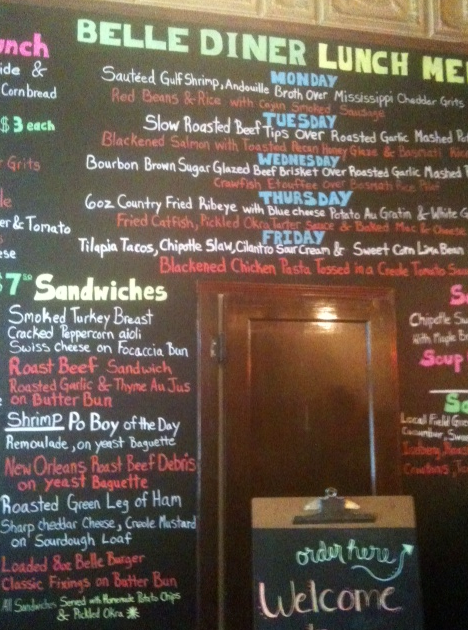 BELLE DINER LUNCH
unch
ide &
Cornbread
$3 each
r Grits
er & Tomato
MONDAY
Sautéed Gulf Shrimp, Andouille Broth Over Mississippi Cheddar Grits
Red Beans & Rice with Cajun Smoked Sausage
TUESDAY
Slow Roasted Beef Tips Over Roasted Garlic Mashed
Blackened Salmon with Toasted Pecan Honey Glaze & Basmati
WEDNESDAY
Bourbon Brown Sugar Glazed Beef Brisket Over Roasted Garlic Mashed
Crawfish Etouffee Over Basmati Rice Pilaf
THURSDAY
6oz Country Fried Ribeye with Blue cheese Potato Au Gratin & White
Fried Catfish, Pickled Okra Tarter Sauce & Baked Mac & Cheese
FRIDAY
Tilapia Tacos, Chipotle Slaw, Cilantro Sour Cream & Sweet Corn Lima Bean
Blackened Chicken Pasta Tossed in a Creole Tomato
$7 Sandwiches
Smoked Turkey Breast
Cracked Peppercorn aioli
Swiss cheese on Focaccia Bun
Roast Beef Sandwich
Roasted Garlic & Thyme Au Jus
on Butter Bun
Shrimp Po Boy of the Day
Remoulade, on yeast Baguette
New Orleans Roast Beef Debris
on yeast Baguette
Roasted Green Leg of Ham
Sharp cheddar Cheese, Creole Mustard
on Sourdough Loaf
Loaded 8oz Belle Burger
Classic Fixings on Butter Bun
All Sandwiches Served with Homemade Potato Chips
& Pickled Okra
Chipotle
with Maple
Soup
Local Field
Cucumber,
Iceberg,
order here
Welcome